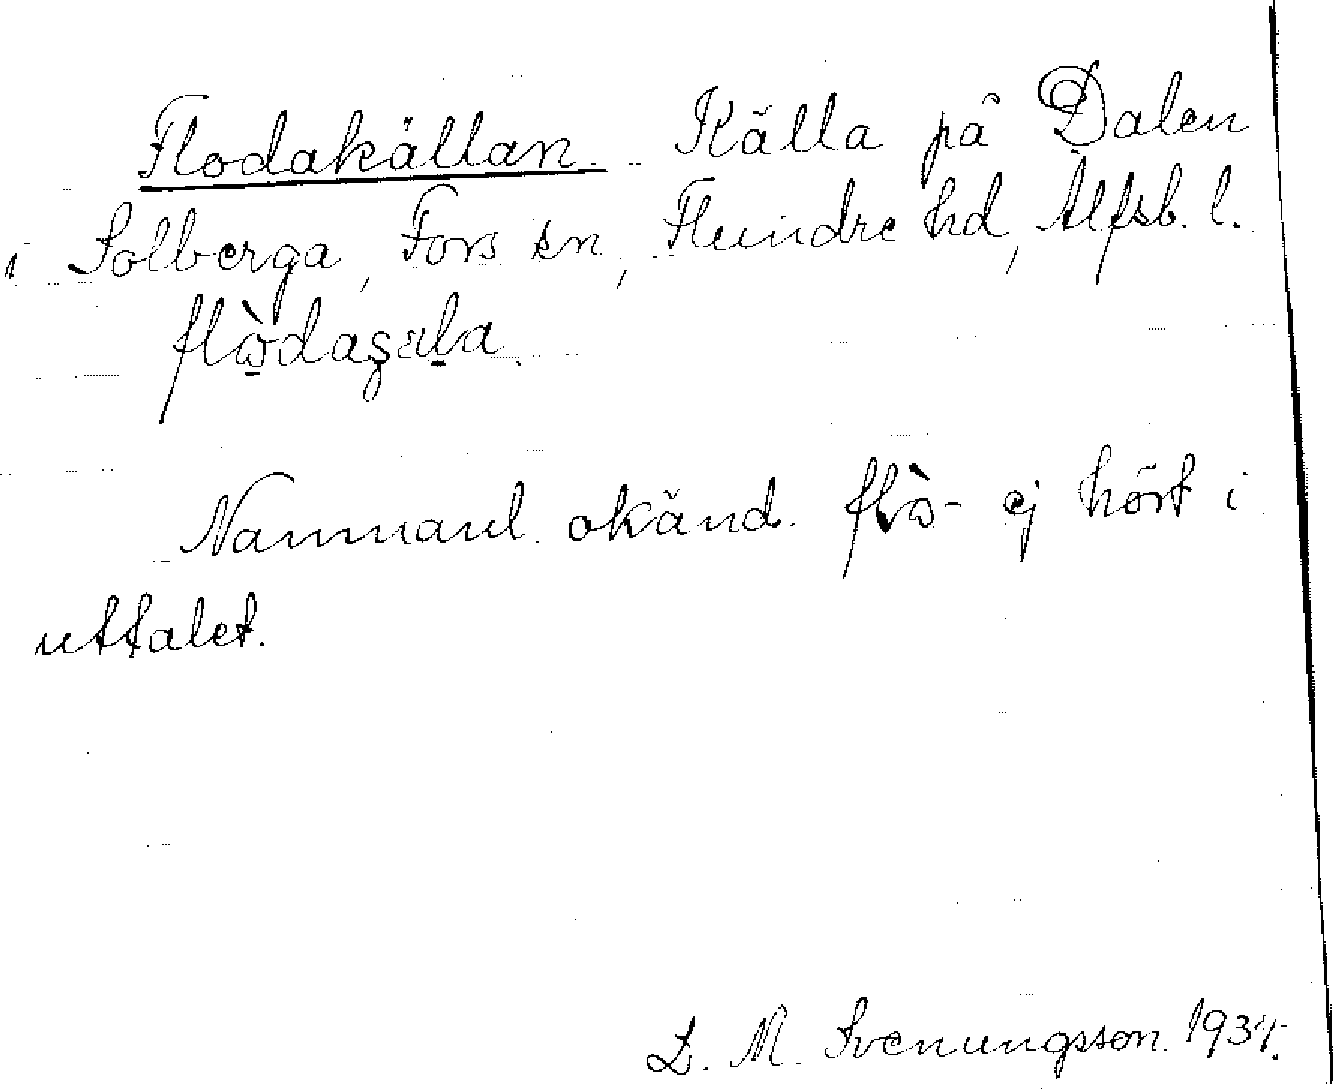 Flodakällan. Källa på Dalen
i Solberga, Fors sn, Flundre hd, Älfsb. l.
Namnanl. okänd. ej hört i
uttalet.
L. M. Svenungsson. 1934.